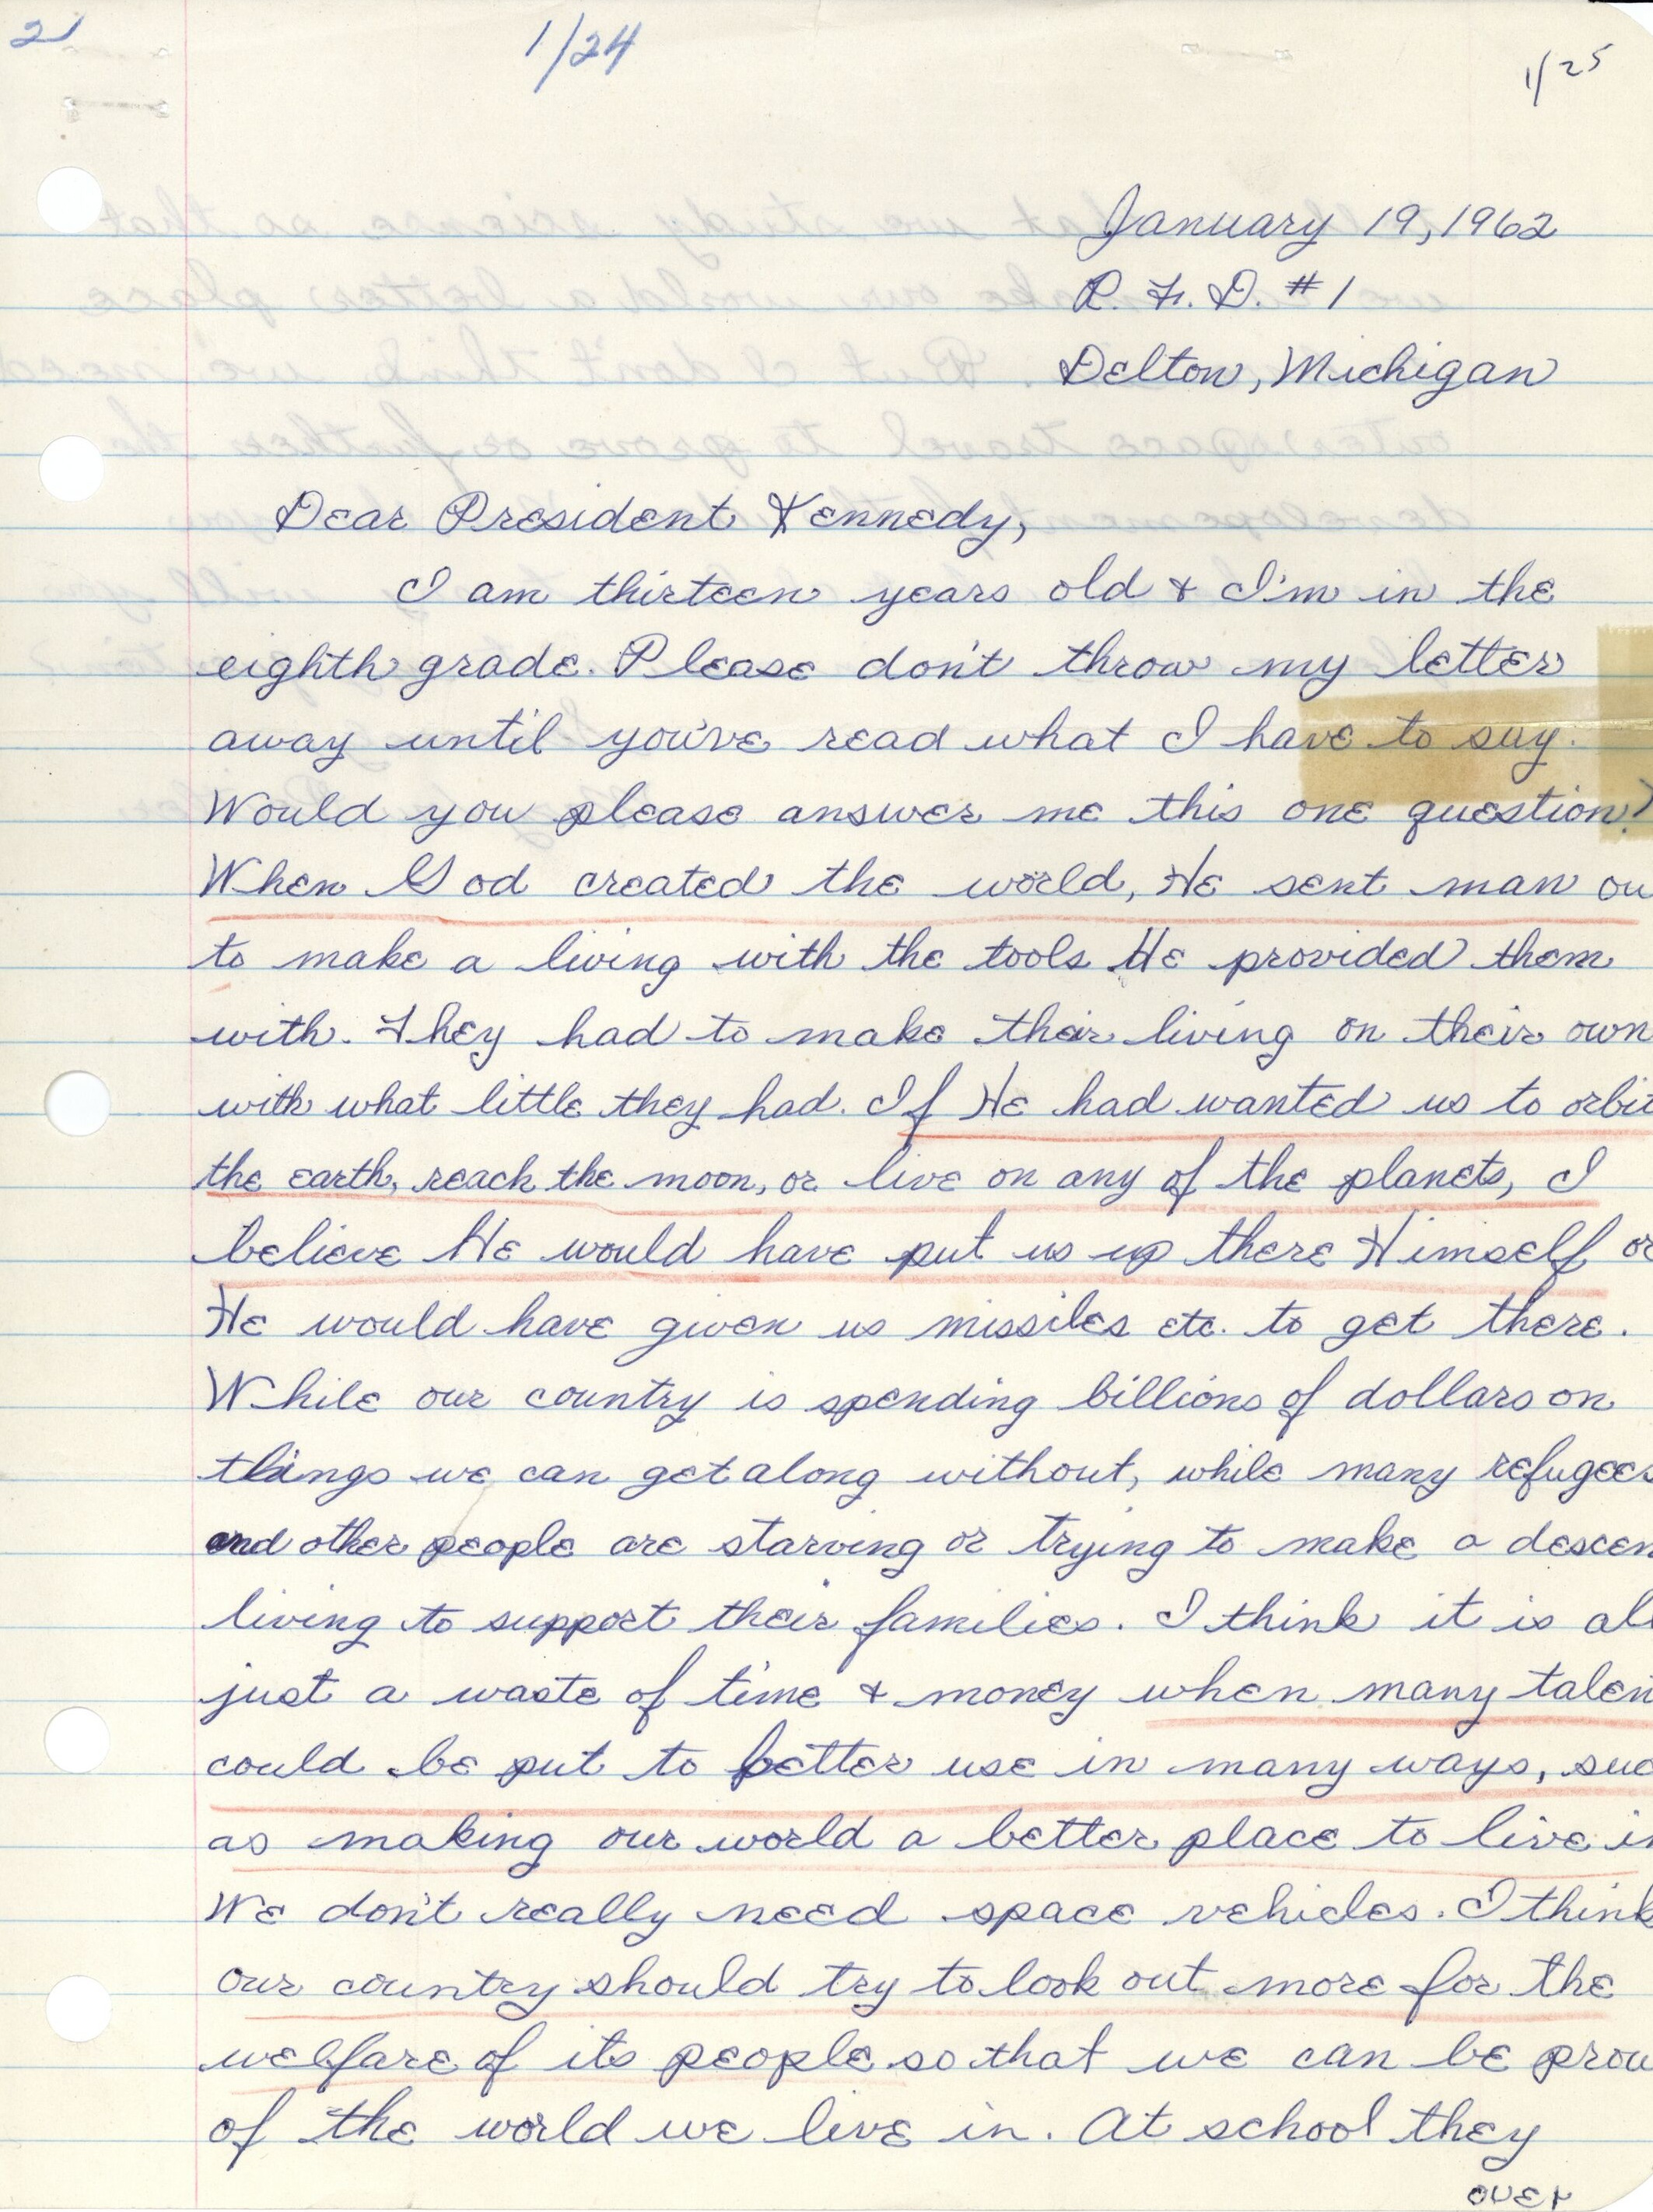 21
1/24
1/25
January 19, 1962
R. F. D. #1
Delton, Michigan
Dear President Kennedy,
I am thirteen years old & I'm in the
eighth grade. Please don't throw my letter
away until you've read what I have to say.
Would you please answer me this one question?
When God created the world, He sent man ou
to make a living with the tools He provided them
with. They had to make their living on their own
with what little they had. If He had wanted us to orbit
the earth, reach the moon, or live on any of the planets, I
believe He would have put us up there Himself or
He would have given us missiles etc. to get there.
While our country is spending billions of dollars on
things we can get along without, while many refugees
and other people are starving or trying to make a descen
living to support their families. I think it is all
just a waste of time & money when many talen
could be put to better use in many ways, suc
as making our world a better place to live in
We don't really need space vehicles. I think
our country should try to look out more for the
welfare of its people so that we can be prou
of the world we live in. At school they
over